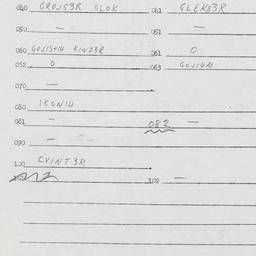 040 GROJS3R GLOK 041 GLEKL3R
050 — 051 —
060 GOJISTN KIND3R 061 O
062 O 063 GOJIM
070 —
080 IKONIM
081 — 082 —
090 —
100 CVINT3R
102 —